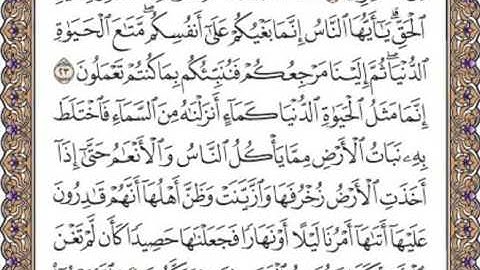 ٱلْحَقِّ ۗ يَٰٓأَيُّهَا ٱلنَّاسُ إِنَّمَا بَغْيُكُمْ عَلَىٰٓ أَنفُسِكُم ۖ مَّتَٰعَ ٱلْحَيَوٰةِ
ٱلدُّنْيَا ۖ ثُمَّ إِلَيْنَا مَرْجِعُكُمْ فَنُنَبِّئُكُم بِمَا كُنتُمْ تَعْمَلُونَ ٢٣
إِنَّمَا مَثَلُ ٱلْحَيَوٰةِ ٱلدُّنْيَا كَمَآءٍ أَنزَلْنَٰهُ مِنَ ٱلسَّمَآءِ فَٱخْتَلَطَ
بِهِۦ نَبَاتُ ٱلْأَرْضِ مِمَّا يَأْكُلُ ٱلنَّاسُ وَٱلْأَنْعَٰمُ حَتَّىٰٓ إِذَآ
أَخَذَتِ ٱلْأَرْضُ زُخْرُفَهَا وَٱزَّيَّنَتْ وَظَنَّ أَهْلُهَآ أَنَّهُمْ قَٰدِرُونَ
عَلَيْهَآ أَتَىٰهَآ أَمْرُنَا لَيْلًا أَوْ نَهَارًا فَجَعَلْنَٰهَا حَصِيدًا كَأَن لَّمْ تَغْنَ